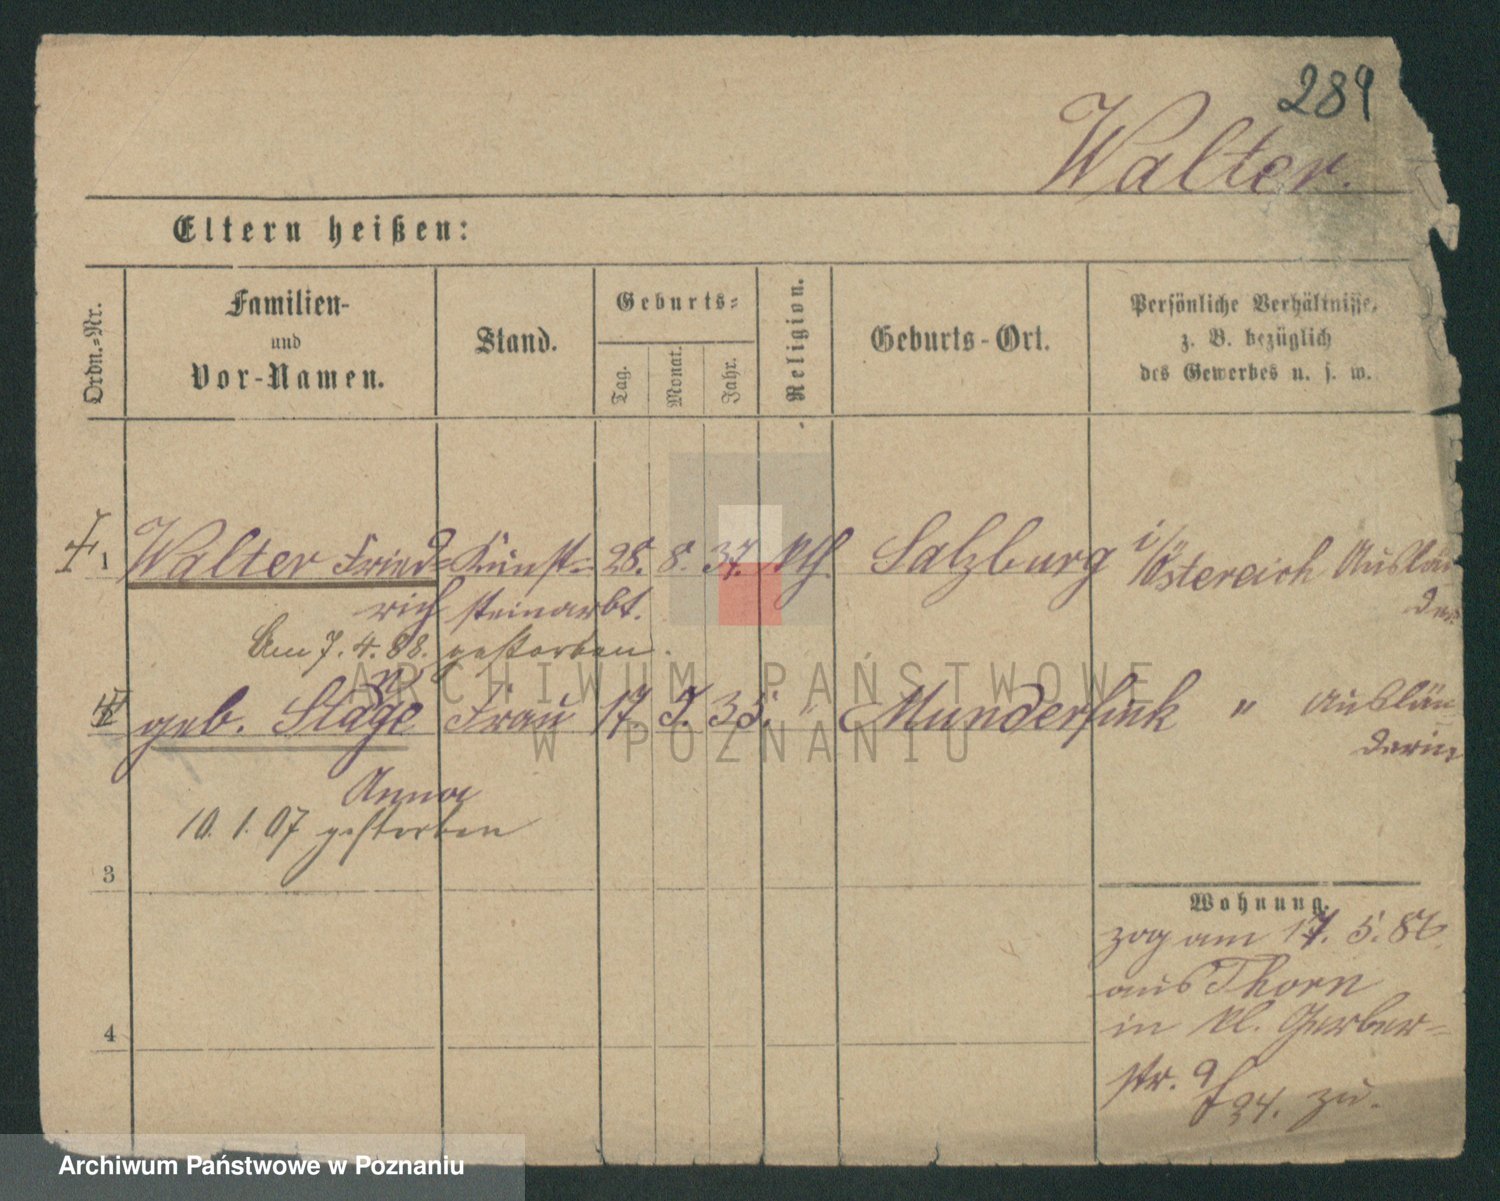 289
Walter.
Eltern heißen:
Ordn.-Nr.
Familien-
und
Vor-Namen.
Stand.
Geburts-
Tag.
Monat.
Jahr.
Religion.
Geburts-Ort.
Persönliche Verhältnisse,
z. B. bezüglich
des Gewerbes u. s. w.
1 Walter Fried- Kunst- 28. 8. 37. kth Salzburg i/Östereich Auslän
rich steinarbt. der
Am 7. 4. 88. gestorben.
geb. Stage Frau 17 35. " " Auslän
derin
Anna
10. 1. 07 gestorben
3
4
Wohnung.
zog am 17. 5. 86.
aus Thorn
in kl. Gerber-
str. 9
zu.
ARCHIWUM PAŃSTWOWE
W POZNANIU
Archiwum Państwowe w Poznaniu